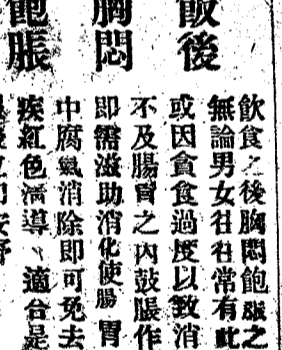 飯後
胸悶
飽脹
飲食之後胸悶飽脹之
無論男女往往常有此
或因貪食過度以致消
不及腸胃之內鼓脹作
即需滋助消化使腸胃
中腐氣消除即可免去
疾紅色清導丶適合是
立即安舒